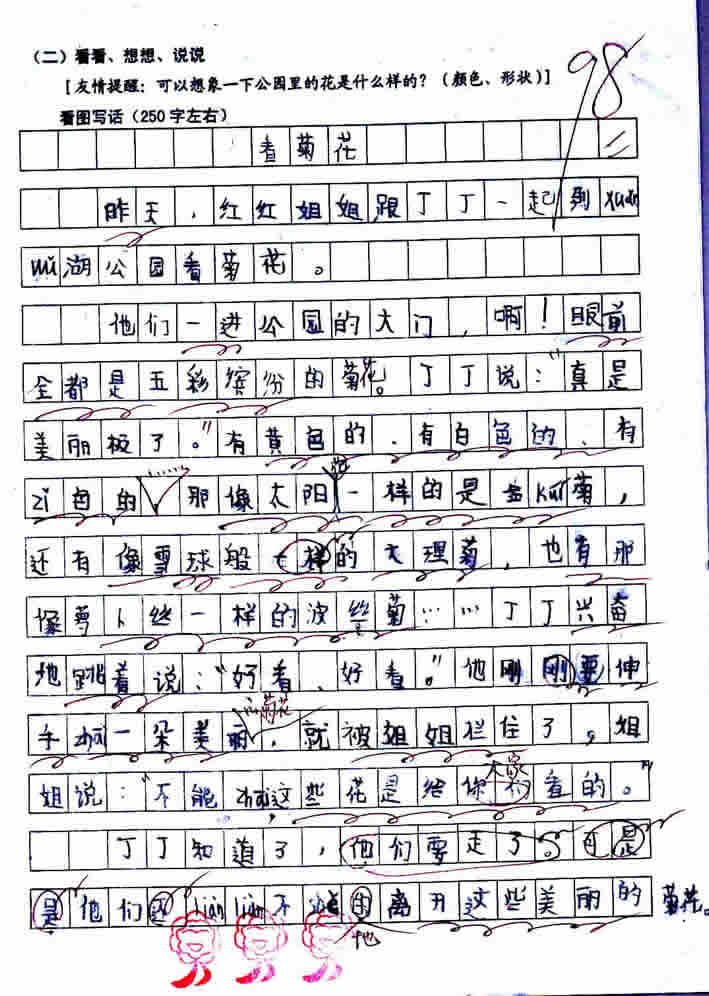 （二）看看、想想、说说
[友情提醒：可以想象一下公园里的花是什么样的？（颜色、形状）]
看图写话（250字左右）
98
看菊花
昨天，红红姐姐跟丁丁一起到xuán
wǔ湖公园看菊花。
他们一进公园的大门，啊！眼前
全都是五彩缤纷的菊花。丁丁说："真是
美丽极了。"有黄色的、有白色的、有
zǐ色的……那像太阳花一样的是金kuí菊，
还有像雪球般一样的大理菊，也有那
像萝卜丝一样的波丝菊……丁丁兴奋
地跳着说："好看、好看。"他刚刚要伸
手zhāi一朵美丽的菊花，就被姐姐拦住了，姐
姐说："不能zhāi，这些花是给大家看的。"
丁丁知道了，他们要走了。可是
是他们还liàn liàn不shě的离开这些美丽的菊花。
地